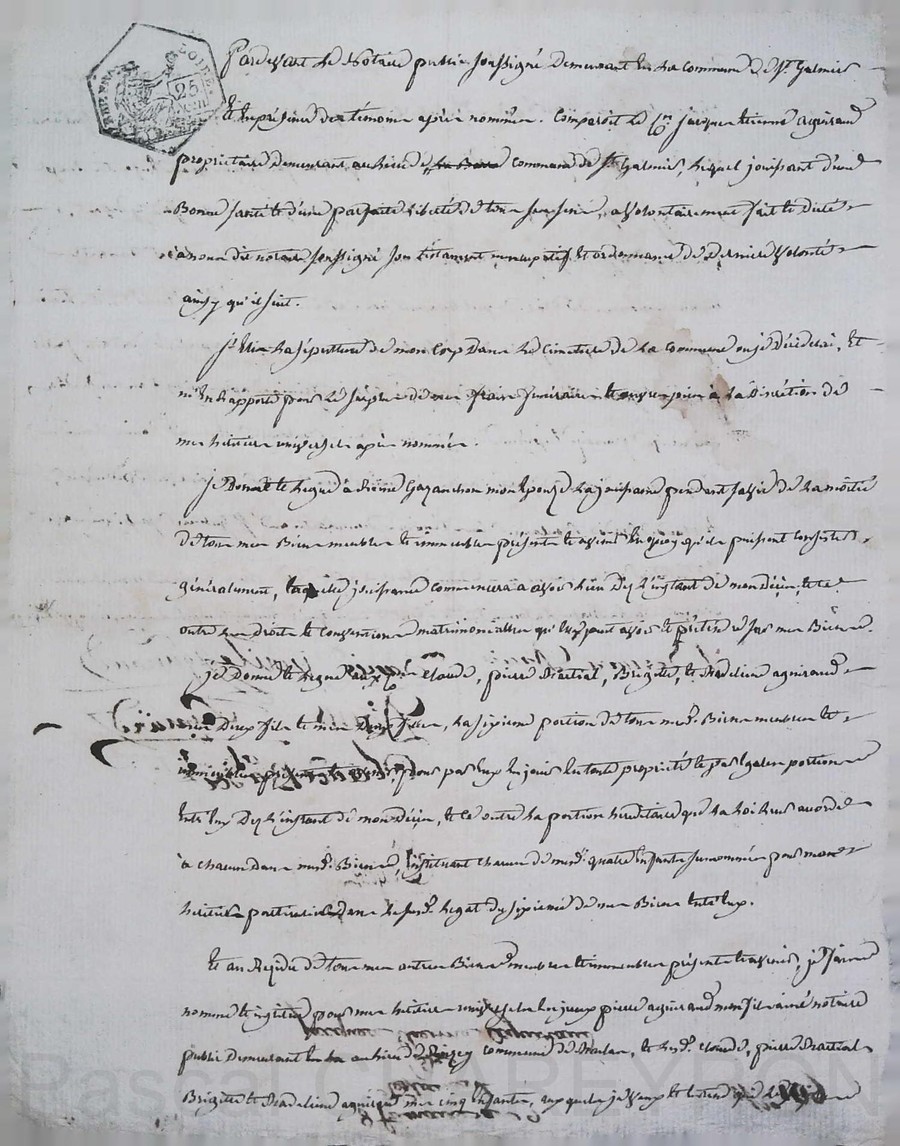 Pardevant le Notaire public soussigné demeurant en la commune de St Galmier
Et en présence des témoins après nommés. Comparoit le Cen jacques etienne aguiraud
propriétaire demeurant au lieu de commune de St Galmier, lequel jouissant d'une
Bonne santé et d'une parfaite liberté de tous ses sens, a volontairement fait et dicté
à nous dit notaire soussigné son testament nuncupatif et ordonnance de derniere volonté
ainsy qu'il suit.
la sépulture de mon Corps dans le Cimetiere de la Commune ou je décéderai, Et
m'en rapporte pour les de mes funéraires à la discrétion de
mes heritiers universels après nommés.
je donne et legue à mon Epouse la jouissance pendant sa vie de la moitié
de tous mes Biens meubles et immeubles présents et avenir En quoy qu'ils puissent consister
généralement, laquelle jouissance commencera a avoir lieu dez l'instant de mon décès, et ce
outre les droits et conventions matrimoniales qu'elle peut avoir et prétendre sur mes Biens.
je donne et legue aux Claude, pierre Martial, Brigitte, et Madeleine aguiraud
mes deux fils et mes deux filles, la sixieme portion de tous mesd. Biens meubles et
immeubles présents et avenir, pour par Eux En jouir En toute propriété et par Egales portions
Entr'Eux dez l'instant de mon décès, et ce outre la portion hereditaire que la loi leur accorde
à chacun dans mesd. Biens, instituant chacun de mesd. quatre Enfants susnommés pour mes
heritiers particuliers dans le susd. legat du sixieme de mes Biens Entr'Eux.
Et au Residu de tous mes autres Biens meubles et immeubles présents et avenir, je
nomme et institue pour mes heritiers universels pierre aguiraud mon fils ainé notaire
public demeurant au lieu de commune de et lesd. Claude, pierre Martial
Brigitte et Madeleine aguiraud mes cinq Enfants, auxquels je veux et
PASCAL CHAREYRON